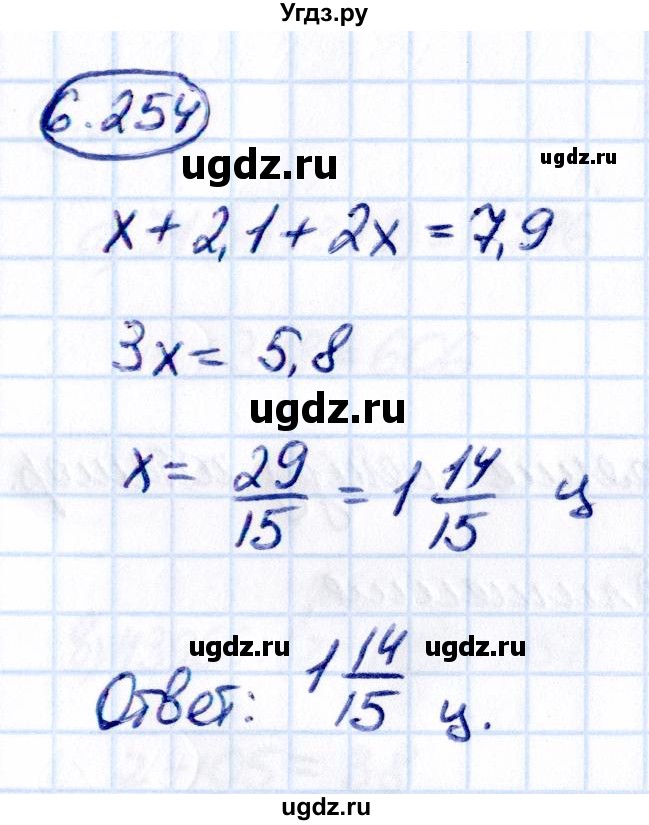 Угдз.ру
6.254
ugdz.ru
ugdz.ru
x + 2,1 + 2x = 7,9
3x = 5,8
ugdz.ru
x = 29/15 = 1 14/15 ц
ugdz.ru
ugdz.ru
Ответ: 1 14/15 ц.
ugdz.ru